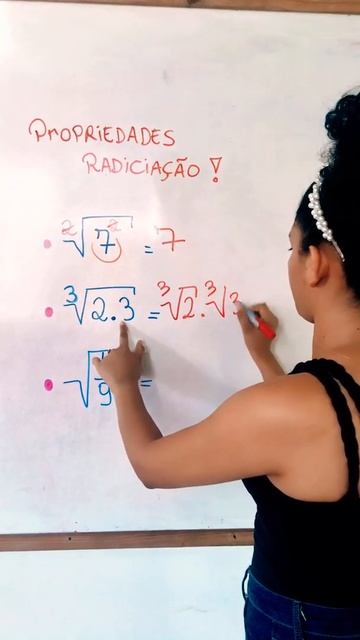 PROPRIEDADES
RADICIAÇÃO!
• ²√7² = 7
• ³√2.3 = ³√2 . ³√3
• √ 9 =